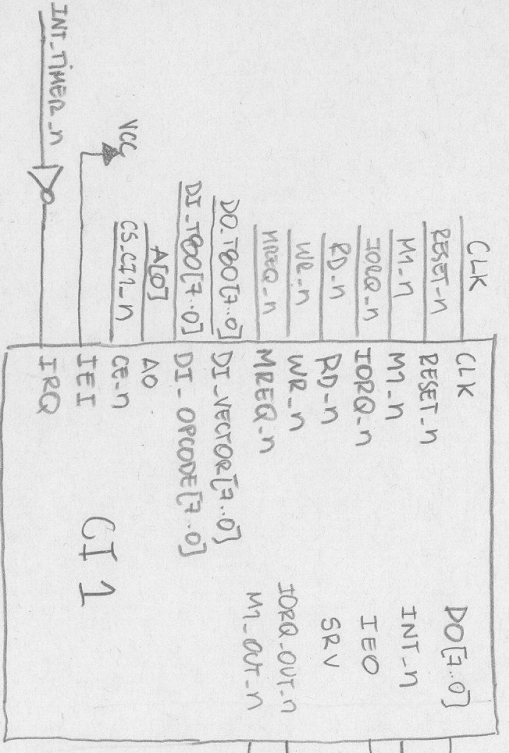 CLK
RESET_n
M1_n
IORQ_n
RD_n
WR_n
MREQ_n
DO_T80[7..0]
DI_T80[7..0]
A[0]
CS_CI1_n
VCC
INT_TIMER_n
CLK
RESET_n
M1_n
IORQ_n
RD_n
WR_n
MREQ_n
DI_VECTOR[7..0]
DI_OPCODE[7..0]
A0
CE_n
IEI
IRQ
CI 1
DO[7..0]
INT_n
IEO
SRV
IORQ_OUT_n
M1_OUT_n